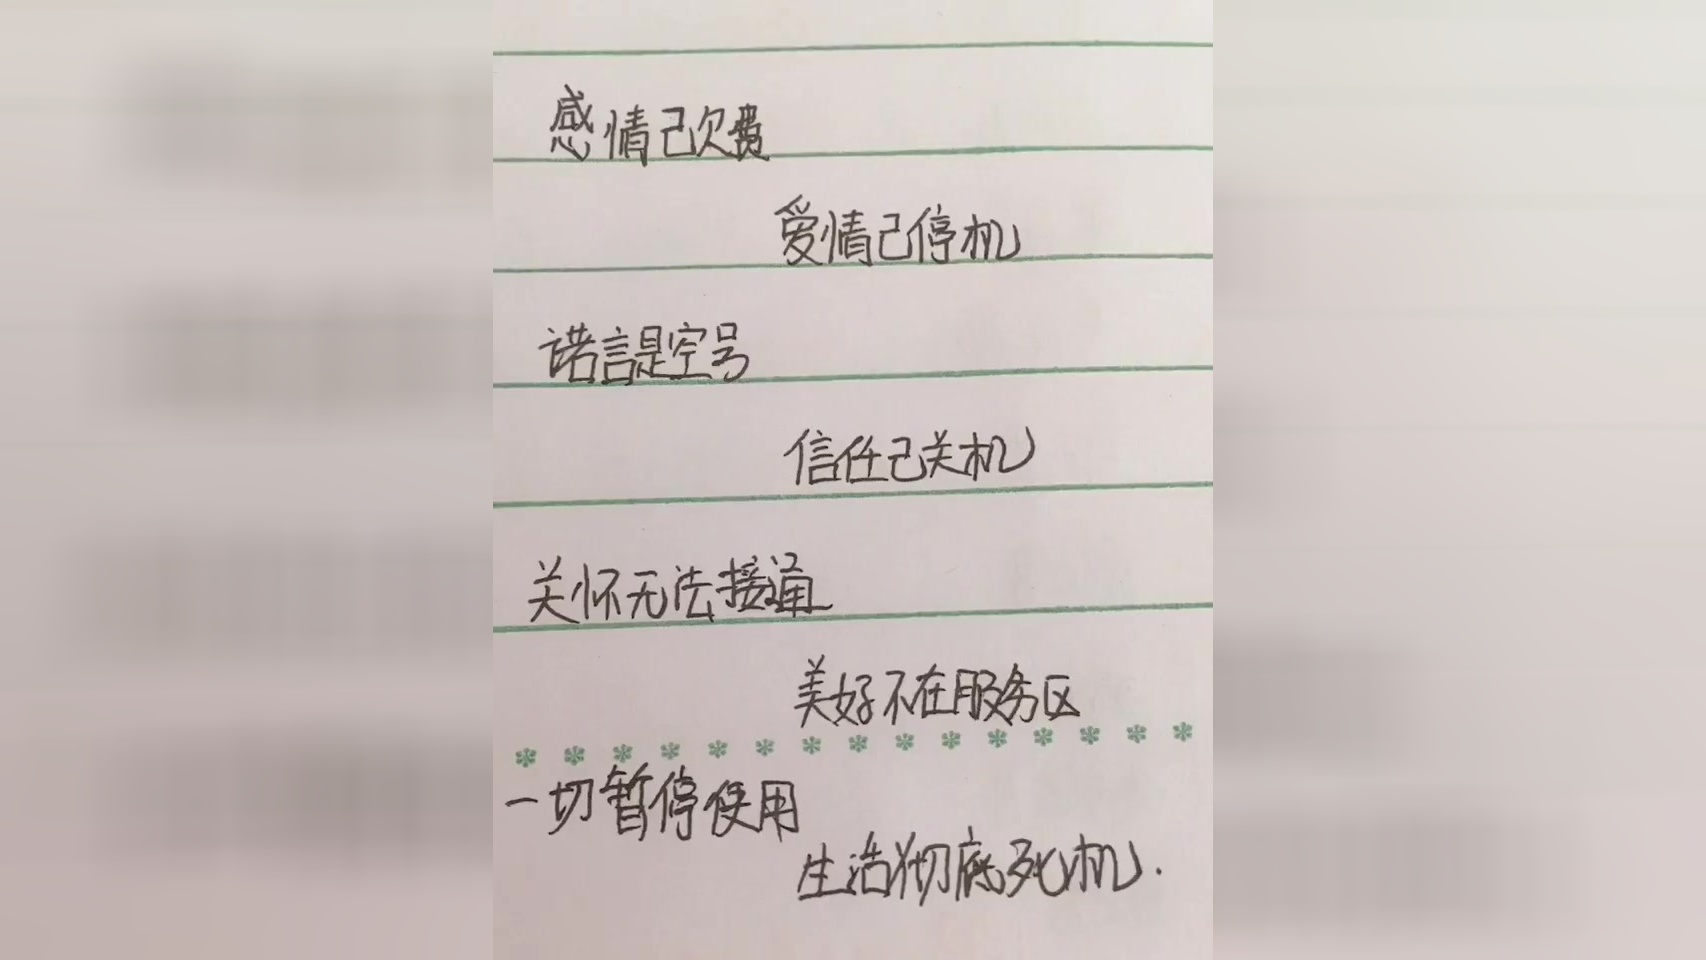 感情已欠费
爱情已停机
诺言是空号
信任已关机
关怀无法接通
美好不在服务区
一切暂停使用
生活彻底死机.